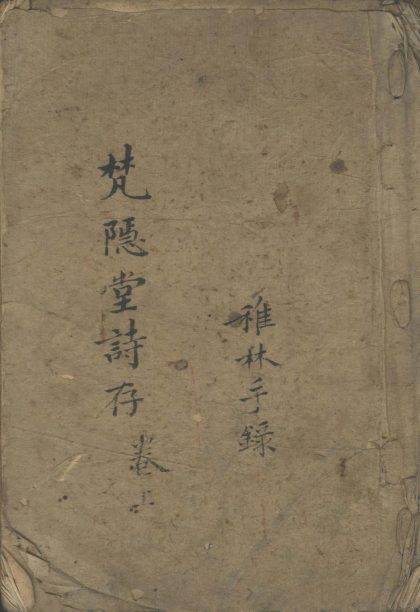 稚林手錄
梵隱堂詩存 卷上